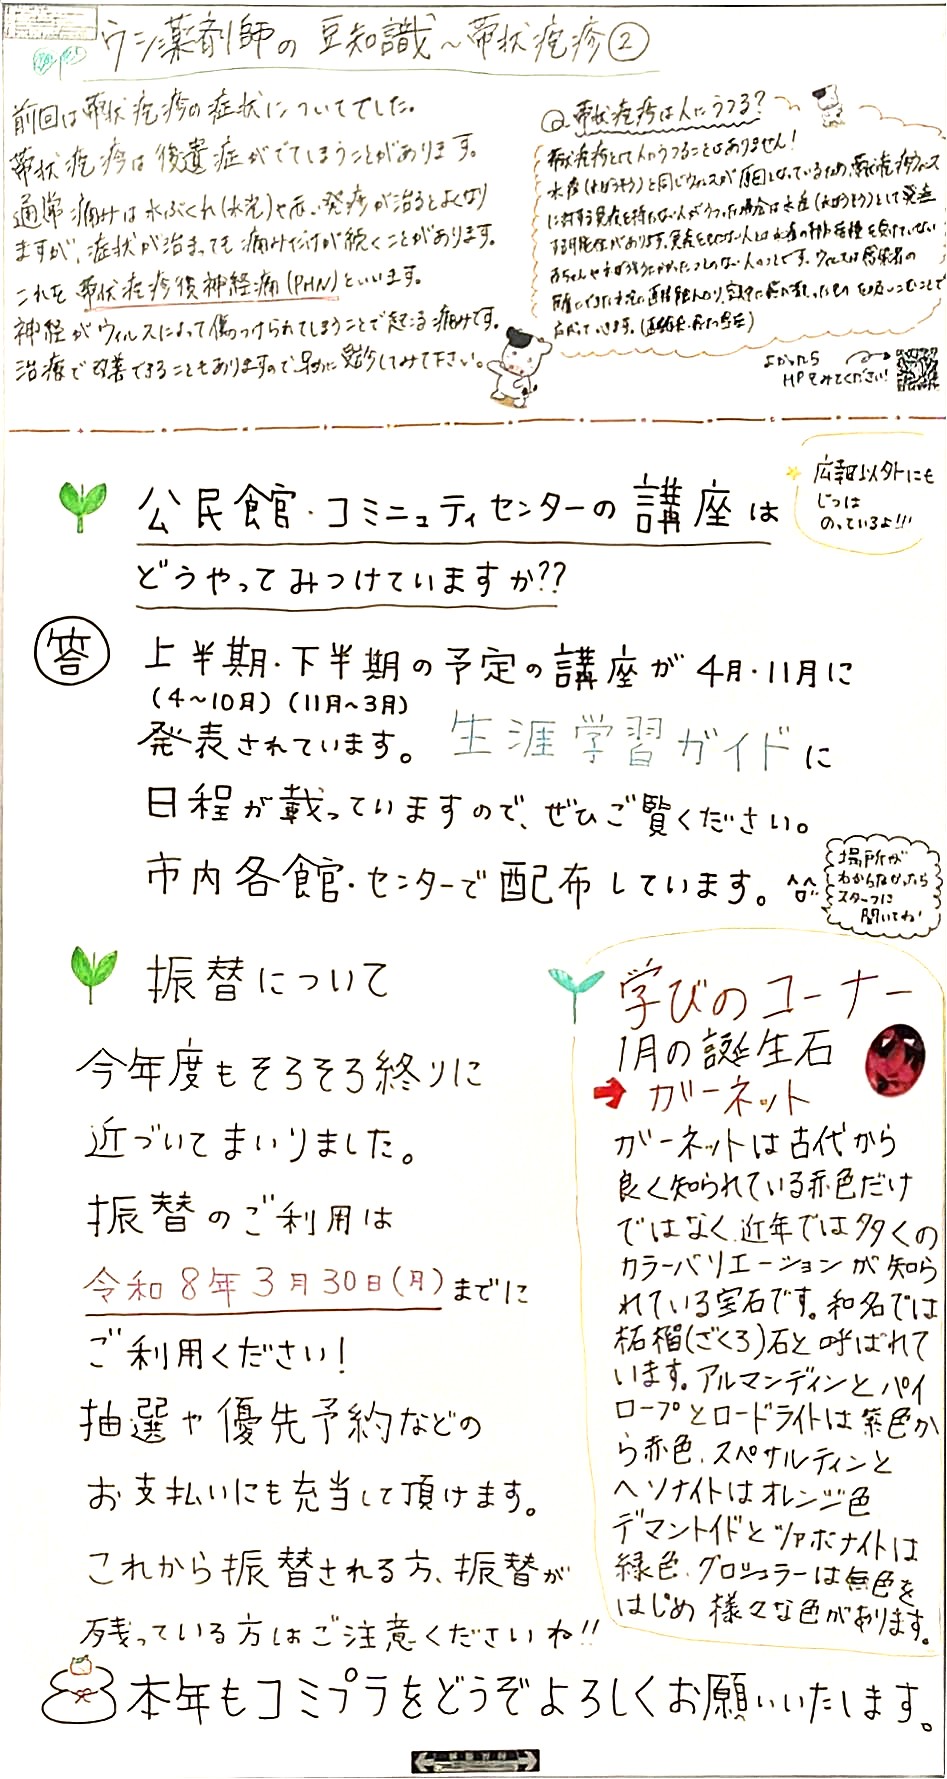 ウシ薬剤師の豆知識～帯状疱疹②
前回は帯状疱疹の症状についてでした。
帯状疱疹は後遺症がでてしまうことがあります。
通常痛みは水ぶくれ(水疱)や赤い発疹が治るとよくなり
ますが、症状が治まっても痛みだけが続くことがあります。
これを帯状疱疹後神経痛(PHN)といいます。
神経がウィルスによって傷つけられてしまうことで起こる痛みです。
治療で改善できることもありますので、早めに受診してみて下さい。
Q.帯状疱疹は人にうつる?
帯状疱疹として人にうつることはありません!
水痘(水ぼうそう)と同じウィルスが原因となっているため、帯状疱疹ウィルス
に対する免疫を持たない人がうつった場合は水痘(水ぼうそう)として発症
する可能性があります。
赤ちゃんや水ぼうそうにかかったことのない人のことです。ウィルスは感染者の
よかったら
HPをみてください!
公民館・コミニュティセンターの講座は
どうやってみつけていますか??
広報以外にも
じつは
のっているよ!!!
答
上半期・下半期の予定の講座が4月・11月に
(4～10月)(11月～3月)
発表されています。生涯学習ガイドに
日程が載っていますので、ぜひご覧ください。
市内各館・センターで配布しています。
場所が
わからなかったら
スタッフに
聞いてね!
振替について
今年度もそろそろ終りに
近づいてまいりました。
振替のご利用は
令和8年3月30日(月)までに
ご利用ください!
抽選や優先予約などの
お支払いにも充当して頂けます。
これから振替される方、振替が
残っている方はご注意くださいね!!
学びのコーナー
1月の誕生石
ガーネット
ガーネットは古代から
良く知られている赤色だけ
ではなく、近年では多くの
カラーバリエーションが知ら
れている宝石です。和名では
柘榴(ざくろ)石と呼ばれて
います。アルマンディンとパイ
ロープとロードライトは紫色か
ら赤色、スペサルティンと
ヘソナイトはオレンジ色
デマントイドとツァボナイトは
緑色、グロシュラーは無色を
はじめ様々な色があります。
本年もコミプラをどうぞよろしくお願いいたします。